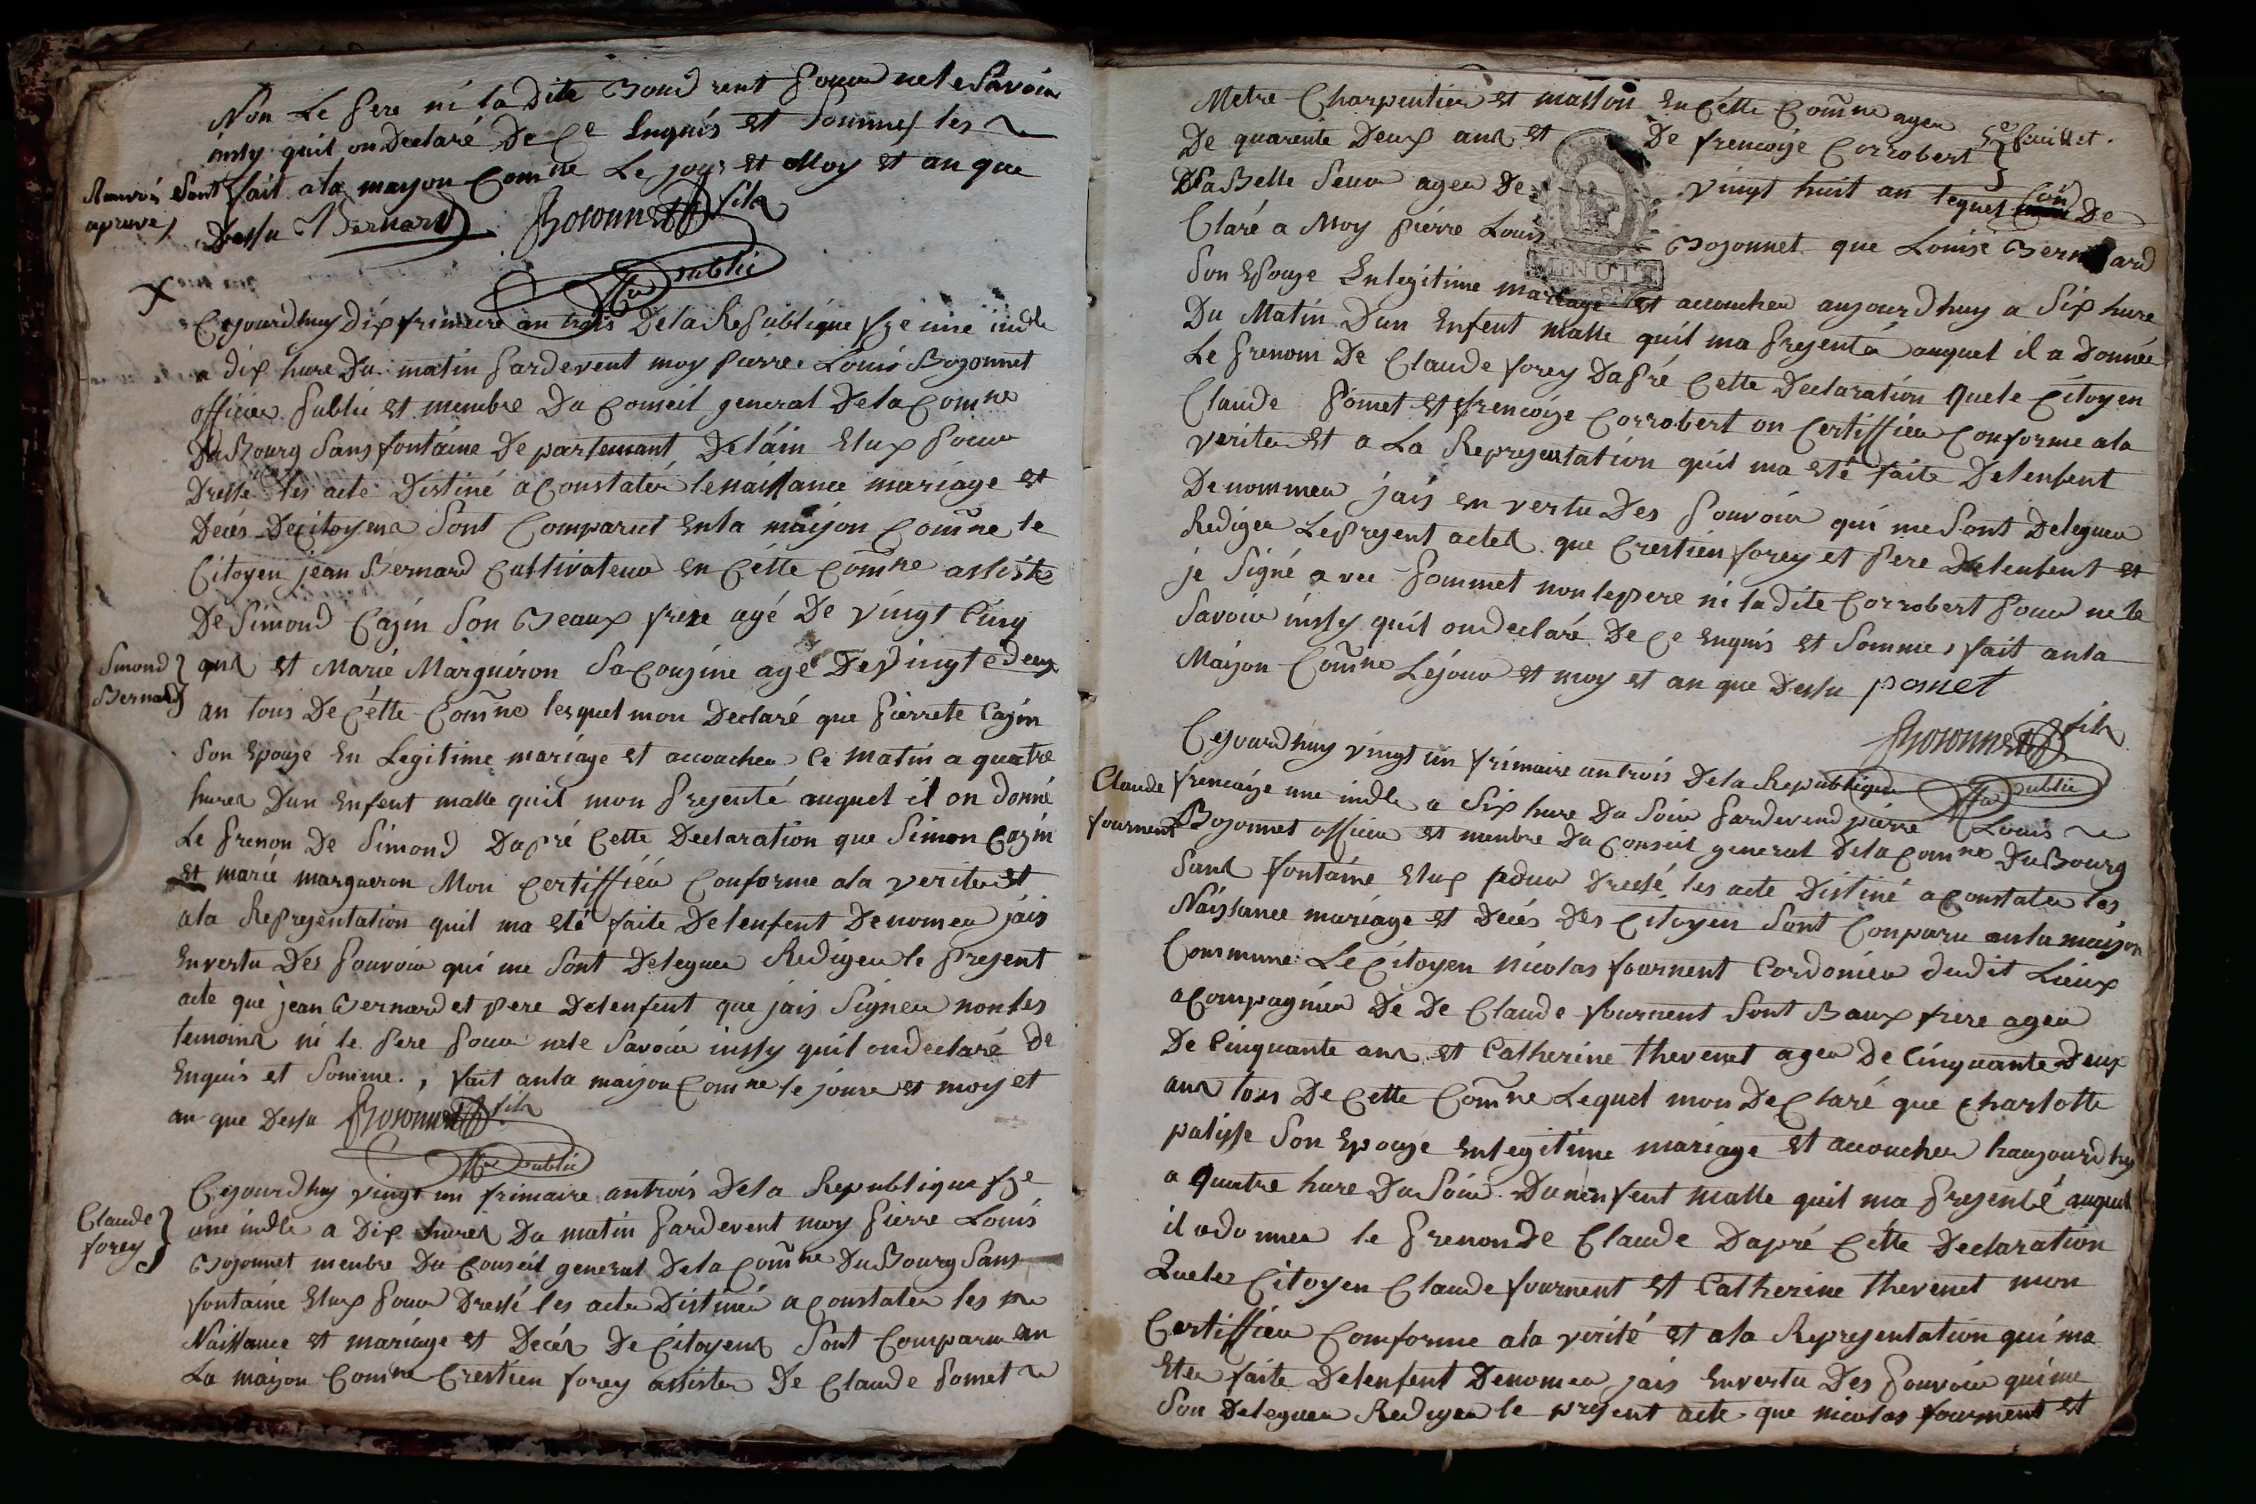 Non Le pere ni la dite Bond rent pour ne le Savoir
insy quil on Declaré De Ce Enquis et Sommes les
Renvoi Sont fait a la mayon Comne Le jour et Moy et an que
apruvé
Dessu Bernard Bojonnet fils
offier public
Cejourdhuy dix frimere an trois De la Republique fse une indle
a dix hure Du matin pardevent moy pierre Louis Bojonnet
officier public et membre Du Conseil general De la Comne
Du Bourg Sans fontaine Departemant Delain Elux pour
Dresse les acte Distiné a Constatér lenaissance mariage et
Decés De Citoyens Sont Comparut en la maison Comne le
Citoyen jean Bernard Cultivateur en Cétte Comne assiste
De Simond Cazin Son Beaux frere agé De vingt Cinq
Simond
Bernard
ans et Marie Marguiron Sa Couzine age De vingte deux
an tous De Cétte Comne lesquel mon Declaré que Pierrete Cazin
Son Epouze En Legitime mariage et accouchea Ce Matin a quatre
hures Dun Enfent malle quil mon presenté auquel il on donné
Le prenon De Simond Dapré Cette Declaration que Simon Cazin
et marie margueron Mon Certiffiéa Conforme a la verite et
a la Representation quil ma eté faite De lenfent Denomea jais
En vertu Des pouvoir qui me Sont Deleguea Redigea le present
acte que jean Bernard et pere De lenfent que jais Signea non les
temoins ni le pere pour ne le Savoir inssy quil on declaré de
Enquis et Somme, fait an la maison Comne le joure et moy et
an que Dessu Bojonnet fils
offier public
Cejourdhuy vingt un frimaire an trois De la Republique fse
Claude
forey
une indle a Dix hures Du matin pardevent moy Pierre Louis
Bojonnet menbre Du Conseil general De la Comne Du Bourg Sans
fontaine Elux pour Dressé les actes Distinéa a Constatea les
Naissance et mariage et Decés De Citoyens Sont Comparu an
La maison Comne Crestien forey assistea De Claude Pomet
Metre Charpentier et masson en Cétte Comne agea
5e feuillet
De quarente Deux ans et De frencoise Corrobert
Sa Belle Seur agea De vingt huit an lequel Con De
Claré a Moy piérre Louis Bojonnet que Louise Bernard
MINUTE
Son Epouze En legitime mariage et accouchea aujourdhuy a Six hure
Du Matin Dun Enfent Malle quil ma presenta auquel il a Donnéa
Le prenom De Claude forey Dapré Cette Declaration Que le Citoyen
Claude Pomet et frencoize Corrobert on Certiffiea Conforme a la
verite et a La Representation quil ma eté faite De lenfent
Denommea jais en vertu Des pouvoir qui me Sont Deleguea
Redigea Le present actes que Crestien forey et pere De lenfent et
je Signé avec pommet non le pere ni ladite Corrobert pour ne le
Savoir inssy quil on declaré De Ce enquis et Somme, fait an la
Maison Comne Le jour et moy et an que Dessu pomet
Bojonnet fils
offier public
Cejourdhuy vingt un frimaire an trois De la Republique
Claude
fournent
frencaize une indle a Six hure Du Soir pardevend piérre Louis
Bojonnet officier et menbre Du Conseil general De la Comne Du Bourg
Sans fontaine Elux pour Dressé les acte Distiné a Constatea les
Naissance mariage et Decés Des Citoyen Sont Conparu an la maison
Commune Le Citoyen Nicolas fournent Cordoniea dudit Lieux
aCompagnéa De De Claude fournent Sont Baux frere agea
De Cinquante ans et Catherine thevenet agea De Cinquante Deux
ans tous De Cette Comne Lequel mon DeClaré que Charlotte
palisse Son Epouze en legitime mariage et accouchea haujourdhuy
a Quatre hure Du Soir Dun enfent Malle quil ma presenté auquel
il a donnea le prenon De Claude Dapré Cétte Declaration
Que le Citoyen Claude fournent et Catherine thevenet mon
Certiffiea Comforme a la verité et a la Representation qui ma
Etea faite De lenfent Denomea jais En vertu Des pouvoir qui me
Son Deleguea Redigea le present acte que nicolas fournent et